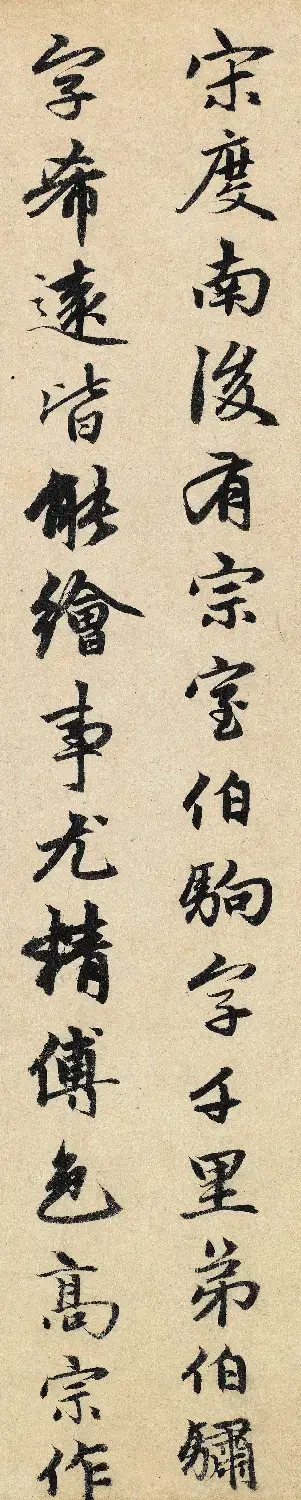 宋度南後有宗室伯駒字千里弟伯驌
字希遠皆能繪事尤精傅色高宗作